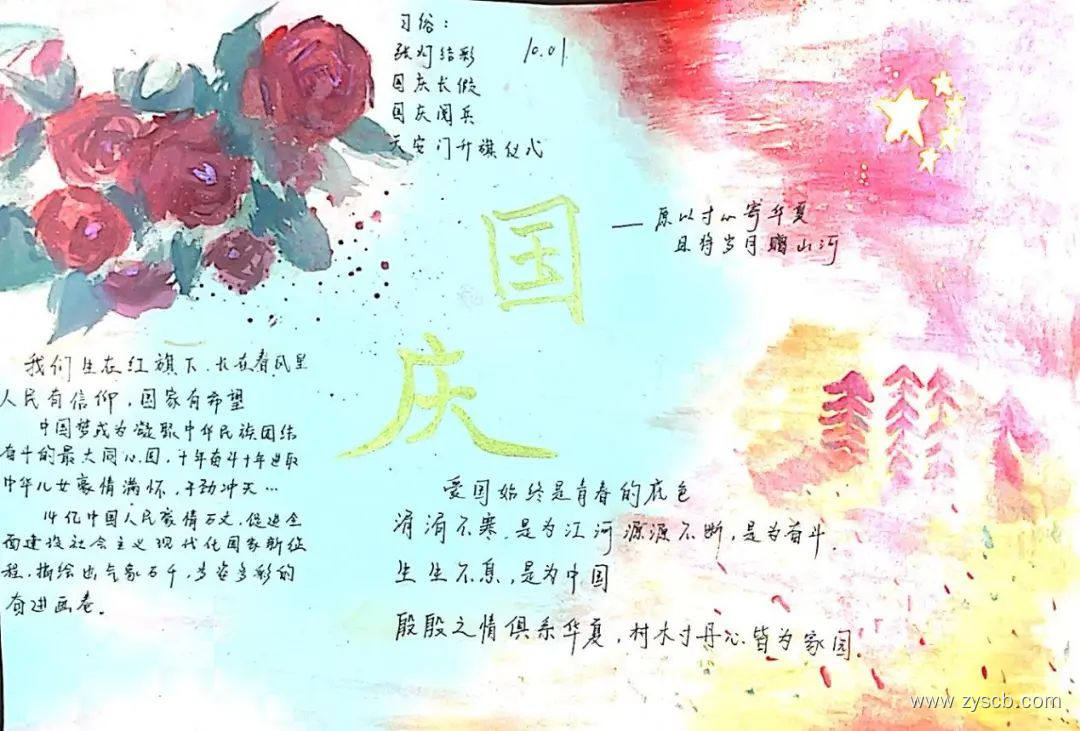 习俗：
张灯结彩
10.01
国庆长假
国庆阅兵
天安门升旗仪式
国庆
—原以寸心寄华夏
且将岁月赠山河
我们生在红旗下，长在春风里
人民有信仰，国家有希望
中国梦成为凝聚中华民族团结
奋斗的最大同心圆，十年奋斗十年进取
中华儿女豪情满怀，干劲冲天…
14亿中国人民豪情万丈，促进全
面建设社会主义现代化国家新征
程，描绘出气象万千，多姿多彩的
奋进画卷。
爱国始终是青春的底色
涓涓不寒，是为江河源源不断，是为奋斗，
生生不息，是为中国
殷殷之情俱系华夏，村木寸丹心皆为家园。
www.zyscb.com